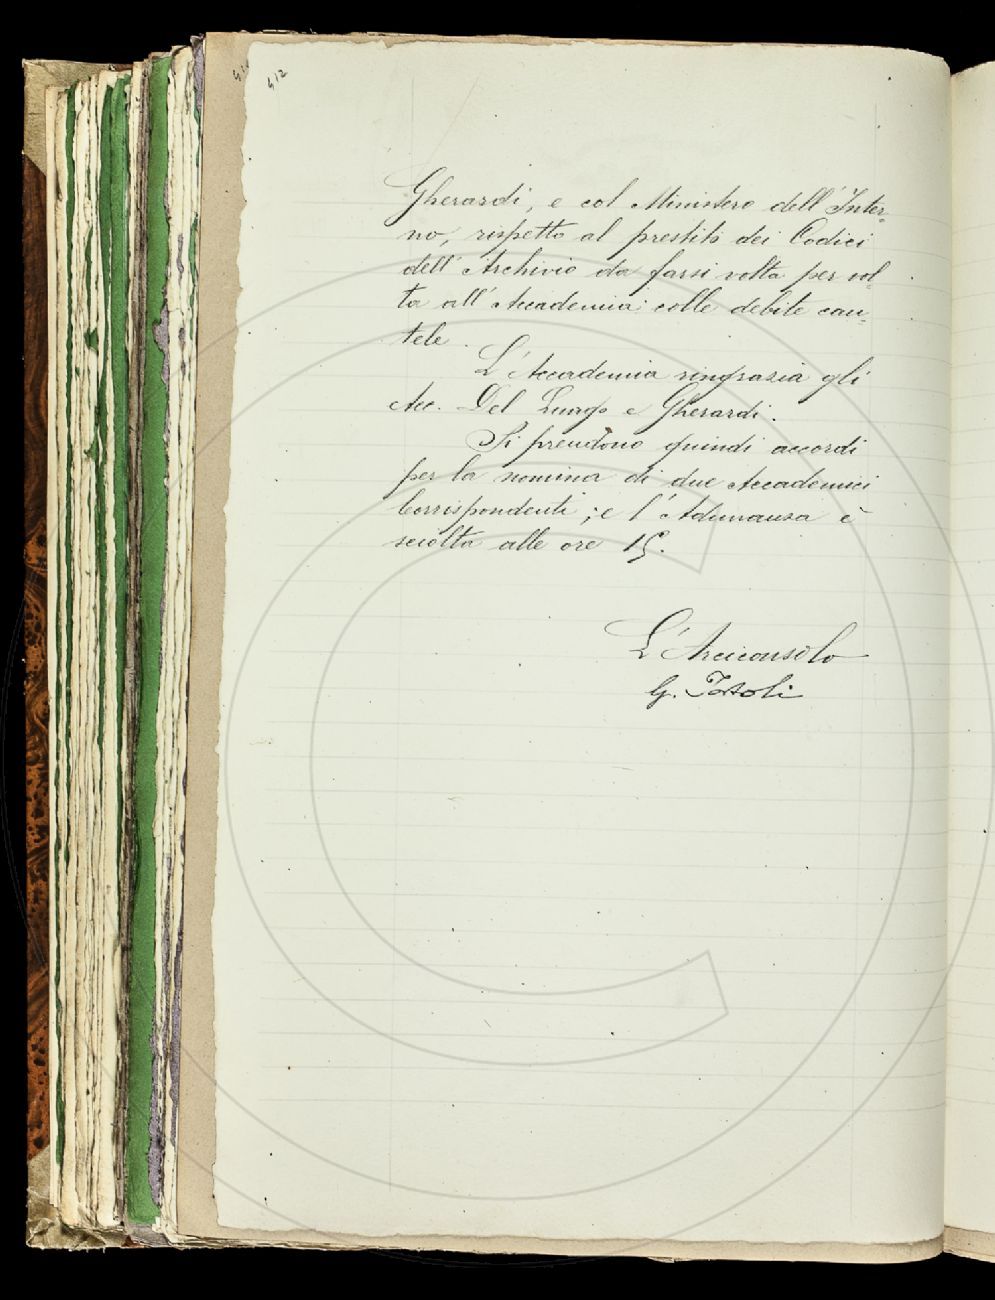 412
Gherardi, e col Ministero dell'Inter-
no, rispetto al prestito dei Codici
dell'Archivio da farsi volta per vol-
ta all'Accademia colle debite cau-
tele.
L'Accademia ringrazia gli
Acc. Del Lungo e Gherardi.
Si prendono quindi accordi
per la nomina di due Accademici
Corrispondenti; e l'Adunanza è
sciolta alle ore 15.
L'Arciconsolo
G. Tortoli